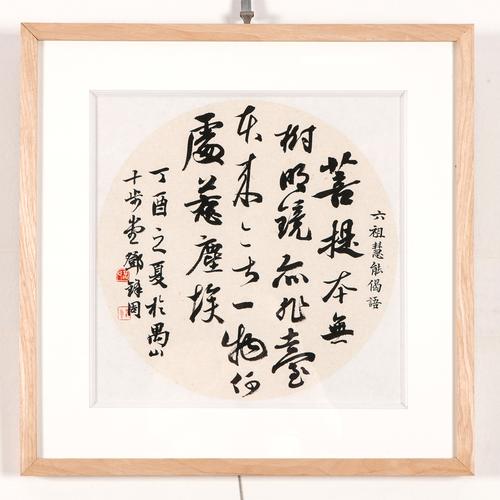 六祖慧能偈語
菩提本無
樹明鏡亦非臺
本来無一物何
處惹塵埃
丁酉之夏於禺山
十步堂鄧